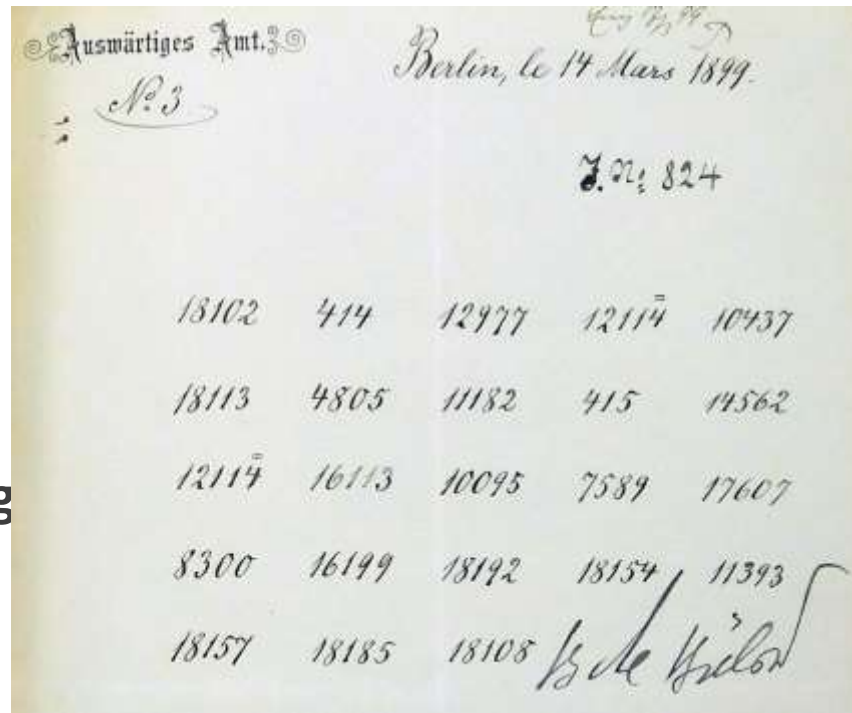 Auswärtiges Amt.
Berlin, le 14 Mars 1899.
No. 3
J. N: 824
18102 414 12977 12114 10437
18113 4805 11182 415 14562
12114 16113 10095 7589 17607
g
8300 16199 18192 18154 11393
18157 18185 18108
Bülow